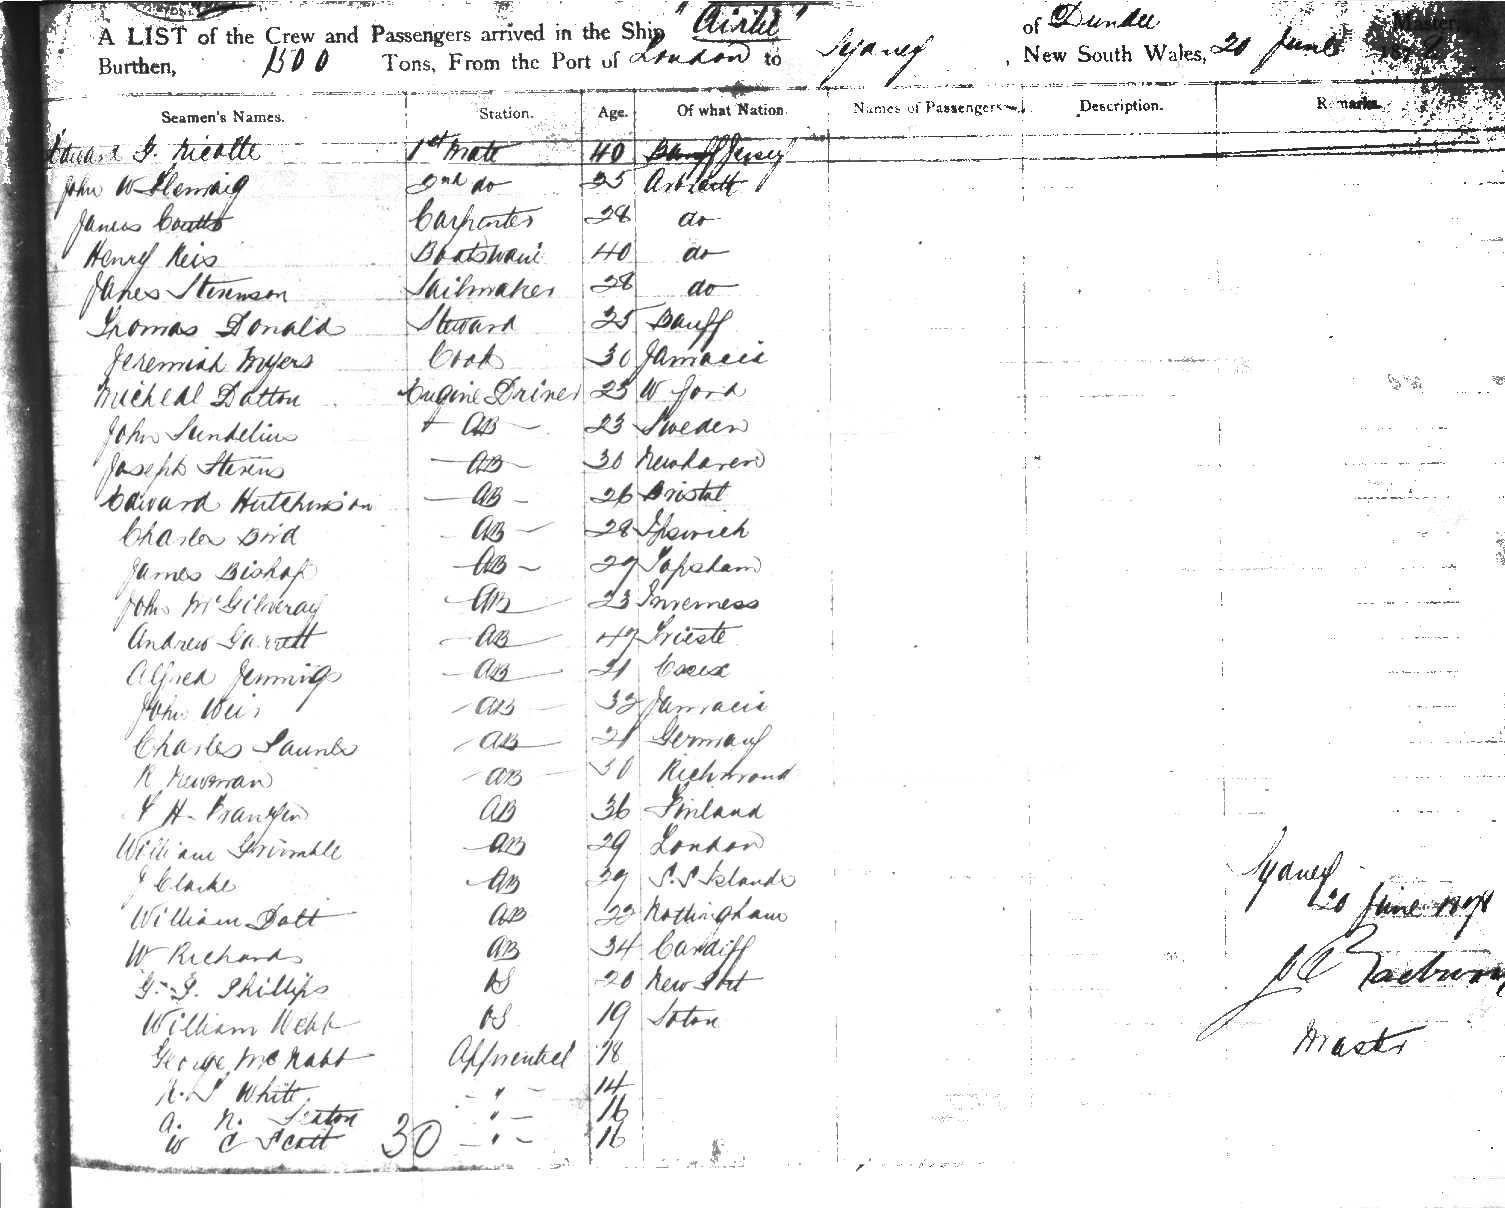 A LIST of the Crew and Passengers arrived in the Ship "Airlie" of Dundee Master,
Burthen, 1500 Tons, From the Port of London to Sydney, New South Wales, 20 June 187
Seamen's Names. Station. Age. Of what Nation. Names of Passengers Description. Remarks.
Edward G. Ricotte 1st Mate 40 Banff Jersey
John W Fleming 2nd do 25
James Coutts Carpenter 28 do
Henry Reis Boatswain 40 do
James Stevenson Sailmaker 28 do
Thomas Donald Steward 25 Banff
Jeremiah Myers Cook 30 Jamacia
Micheal Dalton Engine Driver 23 W ford
John Sundelius AB 23 Sweden
Joseph Stevens AB 30 Newhaven
Edward Hutchinson AB 26 Bristol
Charles Bird AB 28 Ipswich
James Bishop AB 27 Topsham
John McGilveray AB 23 Inverness
Andrew Garrett AB 47 Trieste
Alfred Jennings AB 21 Essex
John Weir AB 32 Jamacia
Charles AB 21 Germany
R Newman AB 30 Richmond
H. Franzen AB 36 Finland
William Grumble AB 29 London
J Clarke AB 27 S.S Islands
William Dolt AB 22 Nottingham
W Richards AB 34 Cardiff
G. G. Phillips OS 20 New Port
William Webb OS 19 Soton
George McNabb Apprentice 18
R. S White " 14
A. N. Seaton " 16
W C Scott 30 " 16
Sydney
20 June 1878
Master